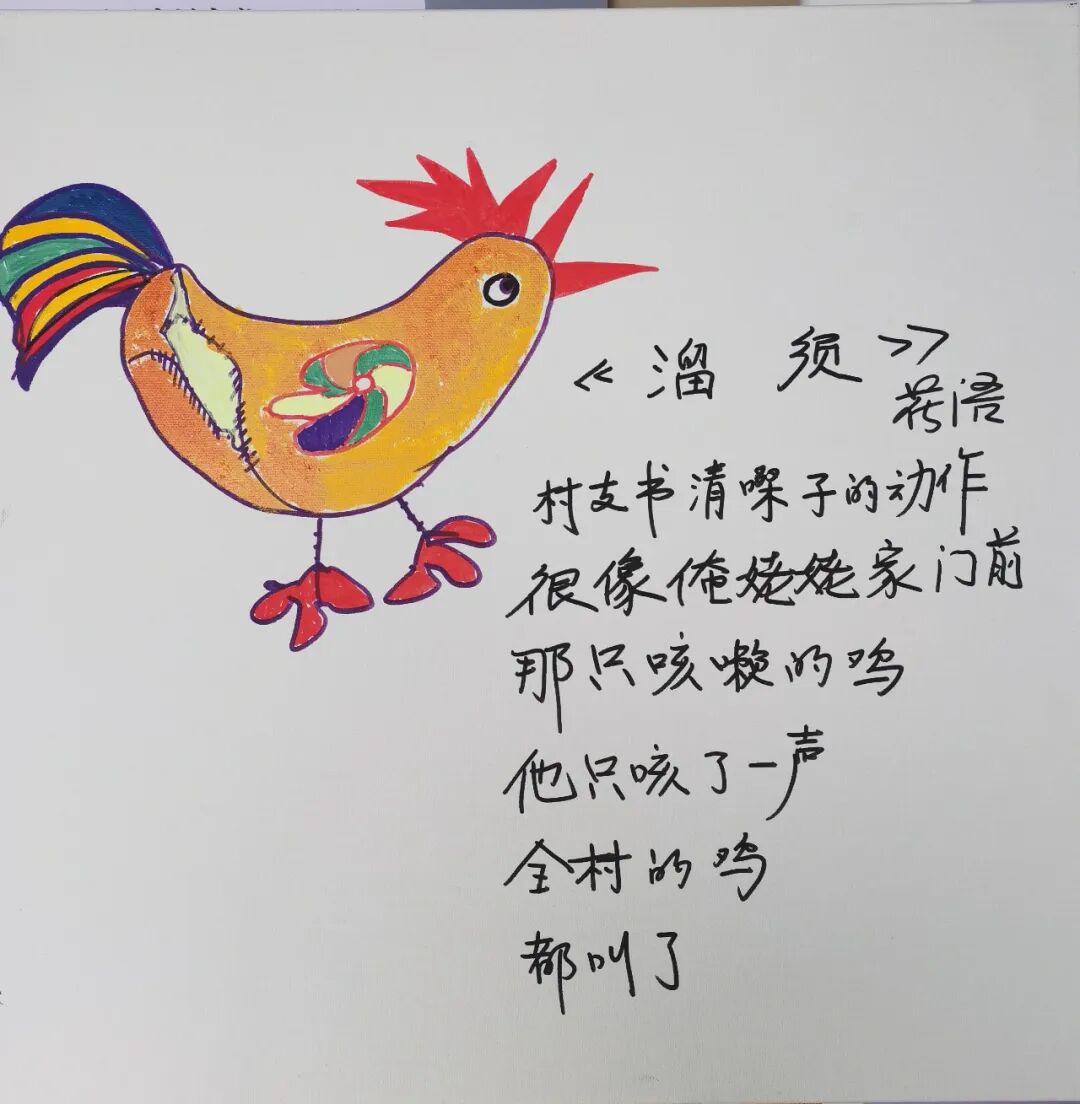 《溜须》
花语
村支书清嗓子的动作
很像俺姥姥家门前
那只咳嗽的鸡
他只咳了一声
全村的鸡
都叫了